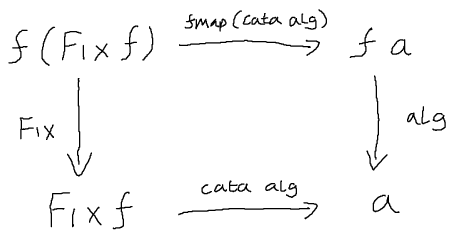 fmap (cata alg)
f (Fix f) f a
Fix alg
cata alg
Fix f a